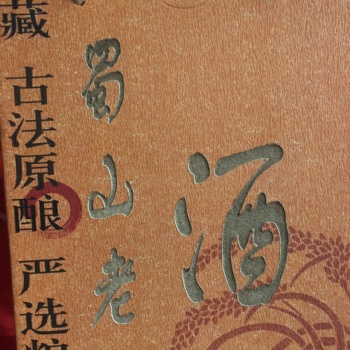 藏 古法原酿 严选粮
蜀山老
酒